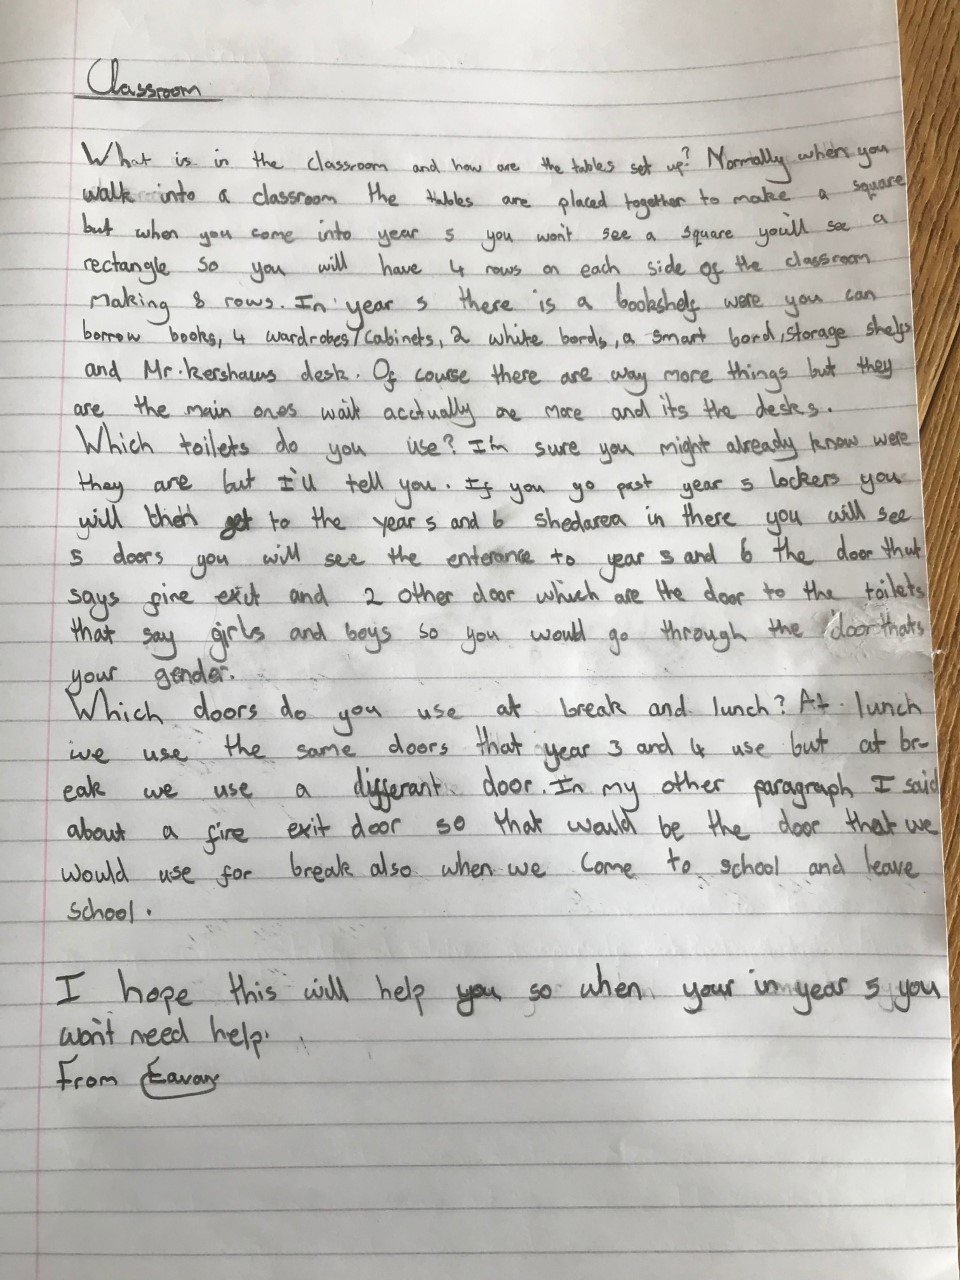 Classroom
What is in the classroom and how are the tables set up? Normally when you
walk into a classroom the tables are placed together to make a square
but when you come into year 5 you won't see a square you'll see a
rectangle so you will have 4 rows on each side of the classroom
making 8 rows. In year 5 there is a bookshelf were you can
borrow books, 4 wardrobes/cabinets, 2 white bords, a smart bord, storage shelfs
and Mr.kershaws desk. Of course there are way more things but they
are the main ones wait acctually one more and its the desks.
Which toilets do you use? I'm sure you might already know were
they are but I'll tell you. If you go past year 5 lockers you
will then get to the year 5 and 6 shedarea in there you will see
5 doors you will see the enterance to year 5 and 6 the door that
says fire exit and 2 other door which are the door to the toilets
that say girls and boys so you would go through the door thats
your gender.
Which doors do you use at break and lunch? At lunch
we use the same doors that year 3 and 4 use but at br-
eak we use a differant door. In my other paragraph I said
about a fire exit door so that would be the door that we
would use for break also when we come to school and leave
school.
I hope this will help you so when your in year 5 you
won't need help.
From